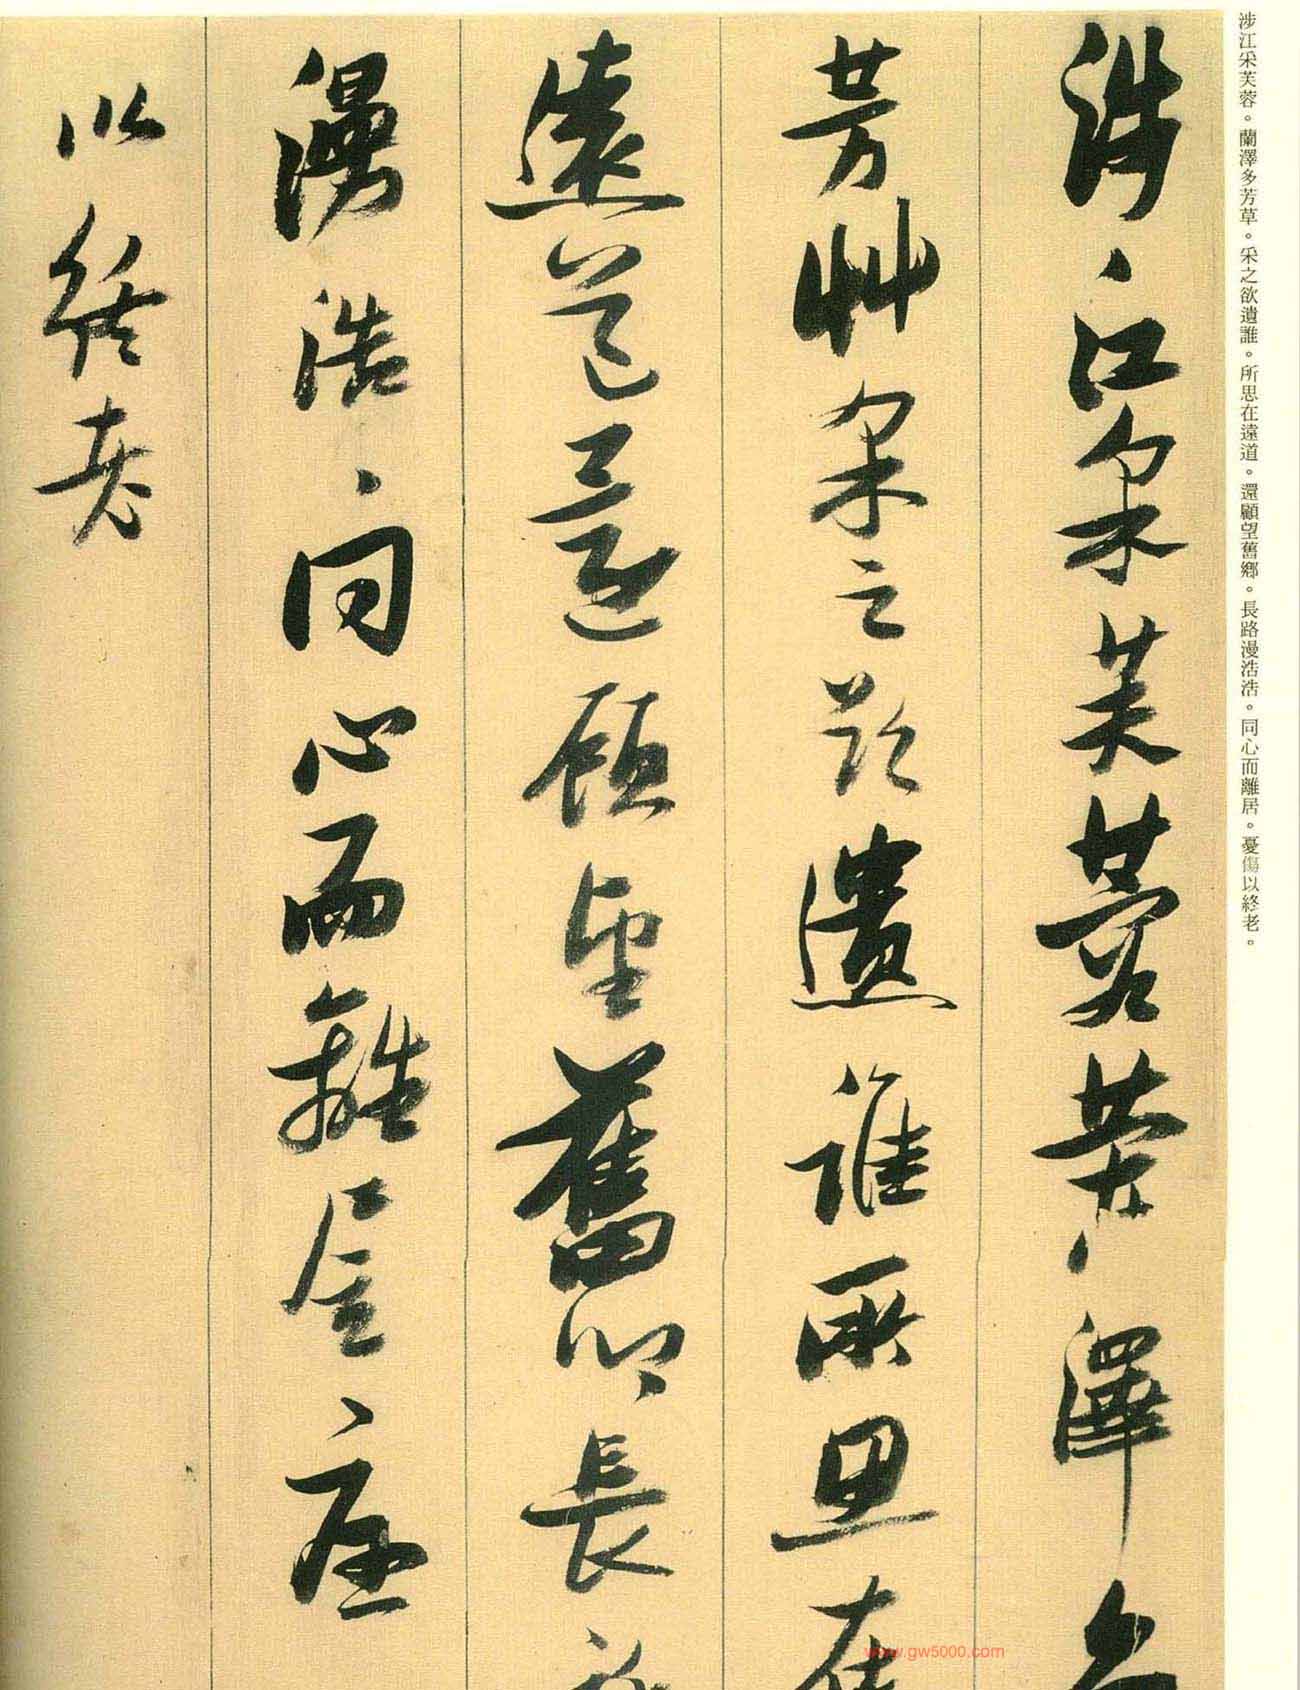 涉江采芙蓉。蘭澤多芳草。采之欲遺誰。所思在遠道。還顧望舊鄉。長路漫浩浩。同心而離居。憂傷以終老。
涉江采芙蓉蘭澤多
芳艸采之欲遺誰所思在
遠道還顧望舊鄉長路
漫浩〻同心而離居憂
以終老
www.gw5000.com